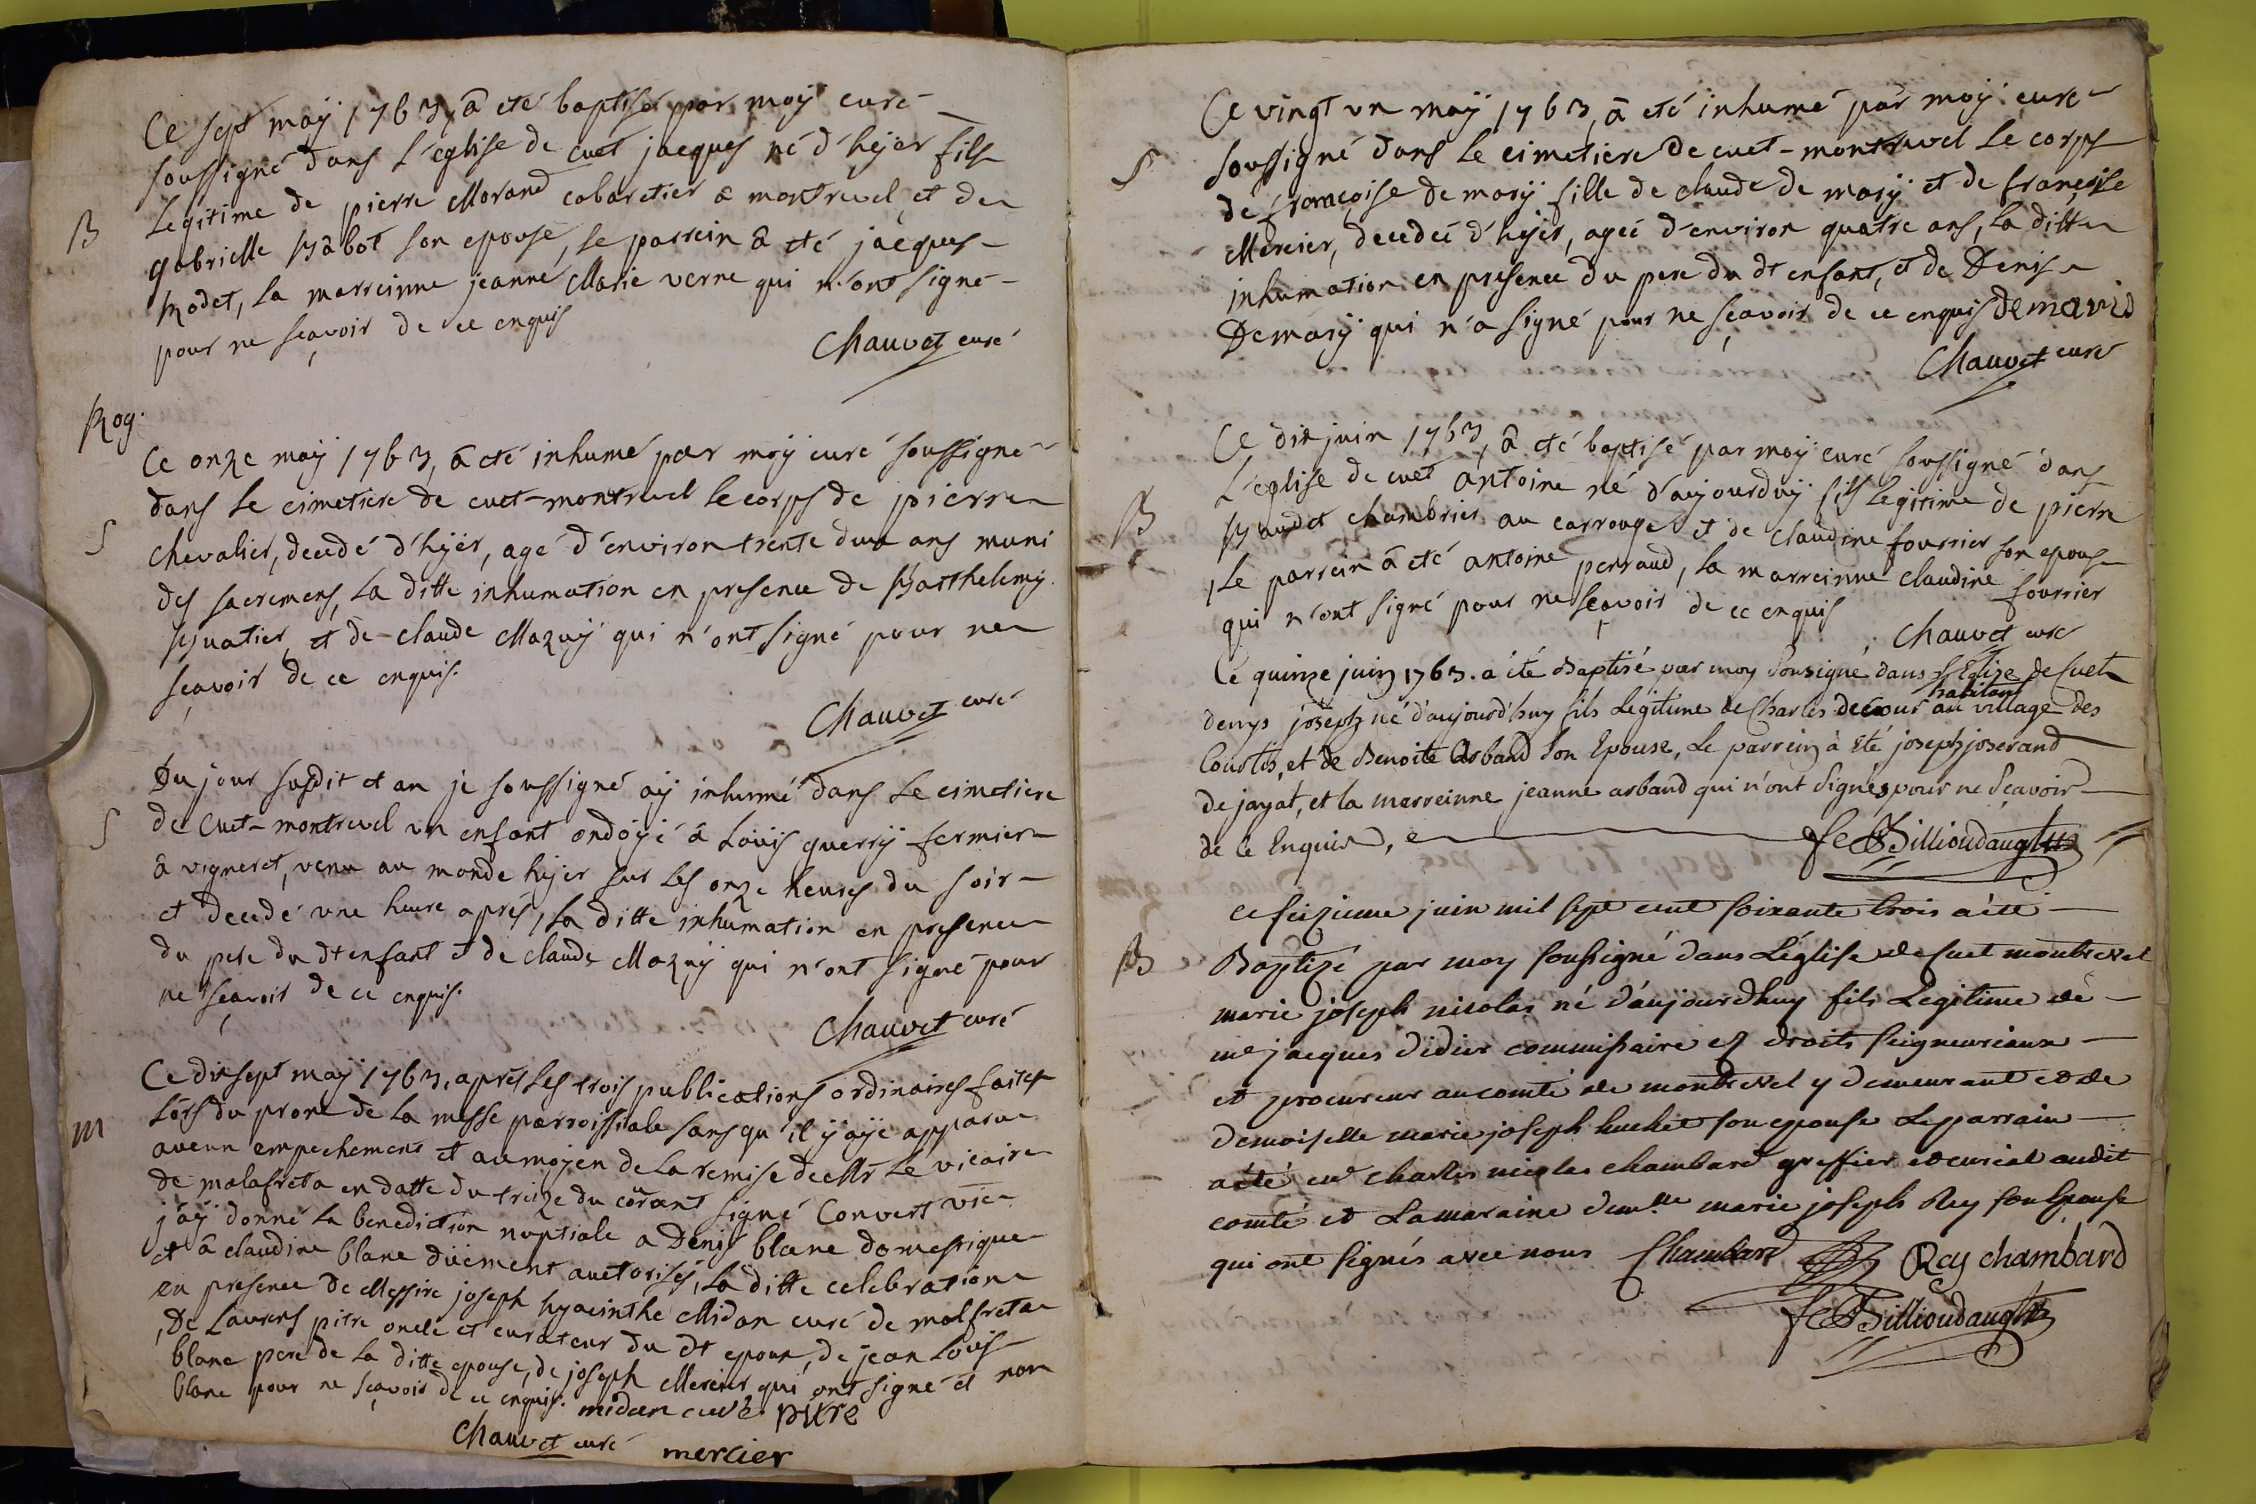 Ce sept maÿ 1763, a eté baptisé par moÿ curé
soussigné dans l'eglise de cuet jacques né d'hÿer fils
B
legitime de pierre Morand cabaretier a montrevel et de
gabrielle Babot son epouse, le parrein a eté jacques
Rodet, la marreinne jeanne Marie verne qui n'ont signé
pour ne sçavoir de ce enquis
Chauvet curé
Rog.
Ce onze maÿ 1763, a eté inhumé par moÿ curé soussigné
dans le cimetiere de cuet-montrevel le corps de pierre
S
chevalier, decedé d'hÿer, agé d'environ trente deux ans muni
des sacremens, la ditte inhumation en presence de Barthelemÿ
Buatier, et de claude Mazuÿ qui n'ont signé pour ne
sçavoir de ce enquis.
Chauvet curé
Du jour susdit et an je soussigné aÿ inhumé dans le cimetiere
S
de Cuet-montrevel un enfant ondoÿé a Loüis guerrÿ fermier
a vigneret, venu au monde hÿer sur les onze heures du soir
et decedé une heure aprés, la ditte inhumation en presence
du pere du dt enfant et de claude Mazuÿ qui n'ont signé pour
ne sçavoir de ce enquis.
Chauvet curé
Ce dixsept maÿ 1763, aprés les trois publications ordinaires faites
M
lors du prone de la messe parroissiale sans qu'il ÿ aÿe apparu
aucun empechement et au moÿen de la remise de Mr le vicaire
de malafreta en datte du treize du courant signé Convert vic.
j'aÿ donné la benediction nuptiale a Denis blanc domestique
et a claudine blanc düement auctorisés, la ditte celebration
en presence de Messire joseph hyacinthe Midan curé de malfreta
, de Laurens pitre oncle et curateur du dt epoux, de jean Loüis
blanc pere de la ditte epouse, de joseph Mercier qui ont signé et non
blanc pour ne sçavoir de ce enquis. midan curé. pitre
Chauvet curé mercier
Ce vingt un maÿ 1763, a eté inhumé par moÿ curé
S
soussigné dans le cimetiere de cuet-montrevel le corps
de francoise de marÿ fille de claude de marÿ et de françoise
Mercier, decedeé d'hÿer, ageé d'environ quatre ans, la ditte
inhumation en presence du pere du dt enfant, et de Denis
Demarÿ qui n'a signé pour ne sçavoir de ce enquis Demarid
Chauvet curé
Ce dix juin 1763, a eté baptisé par moÿ curé soussigné dans
L'eglise de cuet antoine né d'aujourduÿ fils legitime de pierre
B
Baudet chambrier au carrouge et de claudine fourrier son epouse
, le parrein a eté antoine perraud, la marreinne claudine fourrier
qui n'ont signé pour ne sçavoir de ce enquis
Chauvet curé
Ce quinze juin 1763. a été Baptisé par moy Soussigné dans L'Eglize de Cuet
habitant
denys joseph né d'aujourd'huy fils Légitime de Charles decour au village des
Courtes, et de Benoite Arband Son Epouse, Le parrein à Eté joseph joserand
De jayat, et la marreinne jeanne arband qui n'ont Signés pour ne Sçavoir
de ce Enquis,
ce seizieme juin mil sept cent soixante trois a été
B
Baptizé par moy soussigné dans L'église de Cuet montrevel
marie joseph nicolas né d'aujourdhuy fils Legitime de
me jacques didier commissaire es droits seigneuriaux
et procureur au comté de montrevel y demeurant et de
demoiselle marie joseph huchet son epouse Le parrain
a été me charles nicolas chambard greffier et curial audit
comté et La maraine demlle marie joseph Rey son Epouse
qui ont signés avec nous Chambard Rey chambard